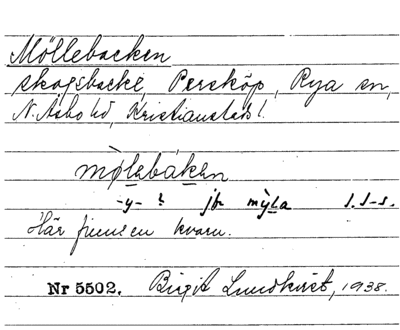 Möllebacken
skogsbacke, Persköp, Rya sn,
N. Åsbo hd, Kristianstads l.
mø̀lebáken
-y- ? jfr mỳla S. S-s.
Här finns en kvarn.
Nr 5502. Birgit Lundkvist, 1938.